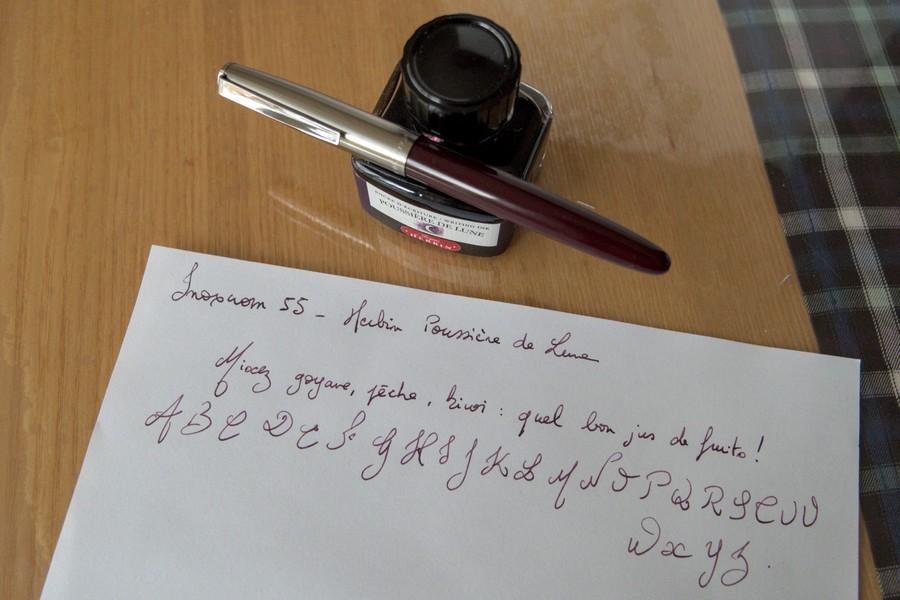 ENCRE D'ÉCRITURE / WRITING INK
POUSSIÈRE DE LUNE
HERBIN
Inoxcrom 55 - Herbin Poussière de Lune
Mixez goyave, pêche, kiwi : quel bon jus de fruits !
A B C D E F G H I J K L M N O P Q R S T U V
W X Y Z .